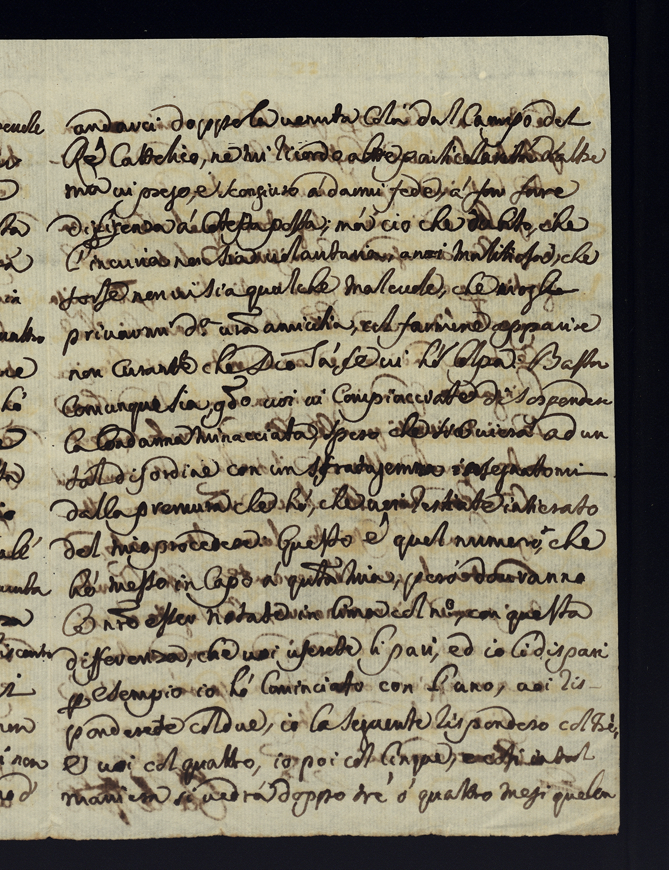 andarci doppo la venuta Colà dal Campo del
Rè Cattolico, ne mi ricordo altre particolarità dalte
ma vi prego, e scongiuro a darmi fede, e à far fare
diligenza à Cotesta posta; mà ciò che dubito, che
l'incuria non sia involontaria anzi malitiosa, che
forse non vi sia qualche malevole, che voglia
privarmi d. vrã amicitia, col farmene apparire
non Curante che Dio sà se vi hò Colpa. Basta
Comunque sia, qdo voi vi Compiacciate di sospendere
la Condanna minacciata, spero che ad un
tal disordine con un stratagemma insegnatomi
dalla premura che hò, che
del mio procedere. Questo è quel numero, che
hò messo in Capo à questa mia, però dovranno
le nre esser notate in Cima col no, con questa
differenza, che voi userete li pari, ed io li dispari
p esempio io hò Cominciato con l'uno, voi ris-
ponderete col due, io la seguente risponderò col trè,
e voi col quattro, io poi col Cinque, e così in tal
maniera si vedrà doppo trè ò quattro mesi quelen